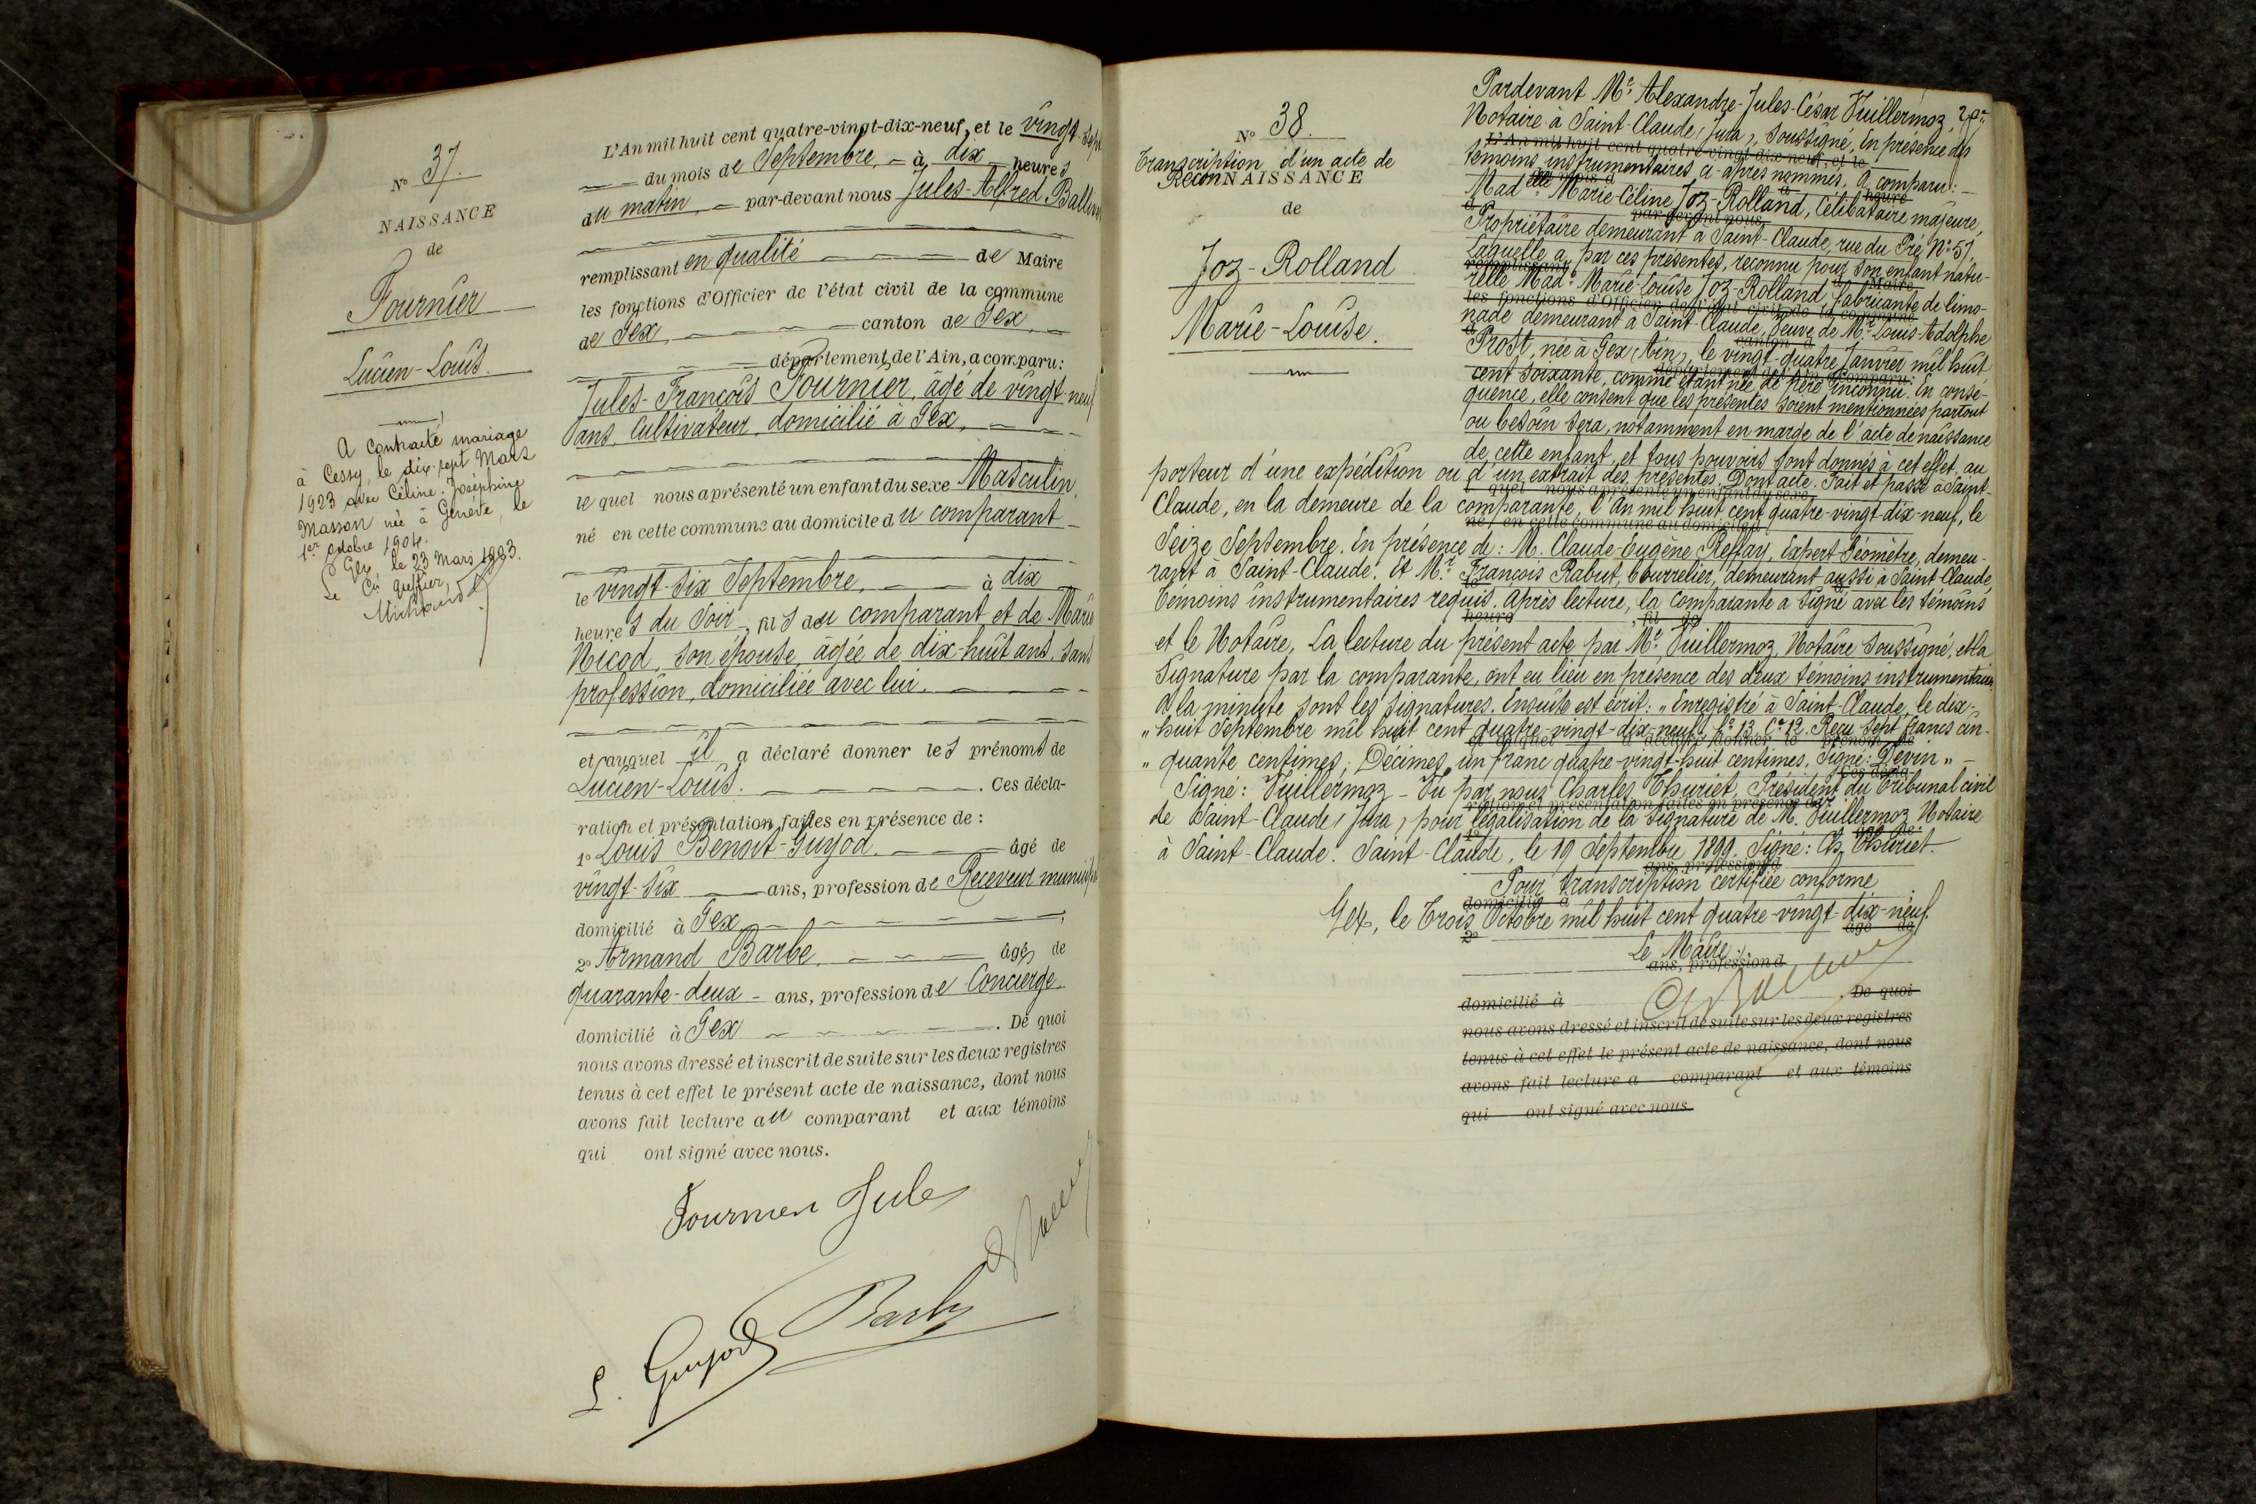 N° 37.
NAISSANCE
de
Fournier
Lucien-Louis.
A contracté mariage
à Cessy, le dix-sept Mars
1923 avec Céline-Joséphine
Masson née à Genève, le
1er octobre 1904.
Gex, le 23 Mars 1923.
Le greffier
L'An mil huit cent quatre-vingt-dix-neuf, et le vingt-sept
du mois de Septembre, à dix heures
du matin, par-devant nous Jules-Alfred
remplissant en qualité de Maire
les fonctions d'Officier de l'état civil de la commune
de Gex, canton de Gex,
département de l'Ain, a comparu:
Jules-François Fournier, âgé de vingt-neuf
ans, Cultivateur, domicilié à Gex,
le quel nous a présenté un enfant du sexe Masculin,
né en cette commune au domicile du comparant
le vingt-six Septembre, à dix
heures du soir, fils du comparant, et de Marie
Nicod, son épouse, âgée de dix-huit ans, sans
profession, domiciliée avec lui.
et auquel il a déclaré donner les prénoms de
Lucien-Louis. Ces décla-
ration et présentation faites en présence de :
1° Louis Benoit-Guyod, âgé de
vingt-six ans, profession de Receveur municipal
domicilié à Gex ;
2° Armand Barbe, âgé de
quarante-deux ans, profession de Concierge
domicilié à Gex . De quoi
nous avons dressé et inscrit de suite sur les deux registres
tenus à cet effet le présent acte de naissance, dont nous
avons fait lecture au comparant et aux témoins
qui ont signé avec nous.
Fournier Jules
Barbe
L. Guyod
N° 38.
Transcription d'un acte de
ReconNAISSANCE
de
Joz-Rolland
Marie-Louise.
Pardevant Me Alexandre-Jules-César Vuillermoz,
Notaire à Saint-Claude (Jura), soussigné, En présence des
L'An mil huit cent quatre-vingt-dix-neuf, et le
témoins instrumentaires ci-après nommés, A comparu:
Madelle Marie Céline Joz-Rolland, Célibataire majeure,
par-devant nous
Propriétaire demeurant à Saint-Claude, rue du Pré, N° 51,
Laquelle a, par ces présentes, reconnu pour son enfant natu-
remplissant de Maire
relle Made Marie-Louise Joz-Rolland, fabricante de limo-
les fonctions d'Officier de l'état civil de la commune
nade demeurant à Saint-Claude, Veuve de Mr Louis-Adolphe
canton d
Prost, née à Gex (Ain), le vingt-quatre Janvier mil huit
département de l'Ain, a comparu:
cent soixante, comme étant née de père inconnu. En consé-
quence, elle consent que les présentes soient mentionnées partout
ou besoin sera, notamment en marge de l'acte de naissance
de cette enfant, et tous pouvoirs sont donnés à cet effet, au
porteur d'une expédition ou d'un extrait des présentes. Dont acte. Fait et passé à Saint-
l quel nous a présenté un enfant du sexe
Claude, en la demeure de la comparante, l'An mil huit cent quatre-vingt-dix-neuf, le
né en cette commune au domicile d
Seize Septembre. En présence de: M. Claude-Eugène Reffay, Expert-Géomètre, demeu-
rant à Saint-Claude. Et Mr François Rabut, bourrelier, demeurant aussi à Saint Claude
le à
Témoins instrumentaires requis. Après lecture, la comparante a signé avec les témoins
heure , fil de
et le Notaire, La lecture du présent acte par Me Vuillermoz, Notaire soussigné, et la
signature par la comparante, ont eu lieu en présence des deux témoins instrumentaires.
A la minute sont les signatures. Ensuite est écrit: „Enregistré à Saint-Claude, le dix-
„huit Septembre mil huit cent quatre-vingt-dix-neuf, f° 13, C° 12. Reçu sept francs cin-
et auquel a déclaré donner le prénom de
„quante centimes; Décimes, un franc quatre-vingt-huit centimes, Signé: Devin"
Ces décla-
Signé: Vuillermoz - Vu par nous Charles Thuriet, Président du Tribunal civil
ration et présentation faites en présence de:
de Saint-Claude (Jura), pour légalisation de la signature de M. Vuillermoz Notaire
1° âgé de
à Saint-Claude. Saint-Claude, le 19 Septembre 1899. Signé: Ch. Thuriet
ans, profession d
Pour transcription certifiée conforme
domicilié à
Gex, le Trois Octobre mil huit cent quatre-vingt-dix-neuf.
2° âgé de
Le Maire:
ans, profession d
domicilié à . De quoi
nous avons dressé et inscrit de suite sur les deux registres
tenus à cet effet le présent acte de naissance, dont nous
avons fait lecture a comparant et aux témoins
qui ont signé avec nous